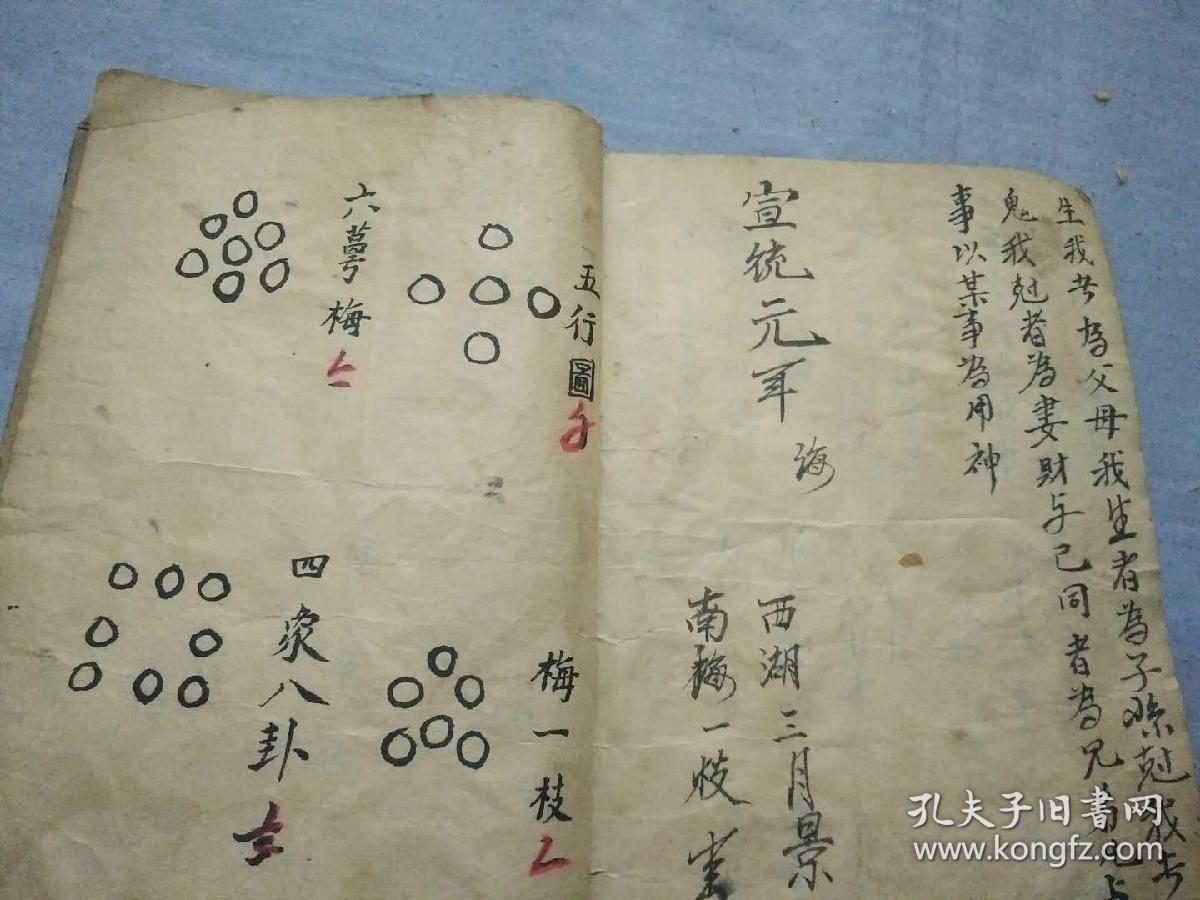 生我者為父母我生者為子孫剋我者
鬼我剋者為妻財与己同者為兄弟凡占
事以某事為用神
宣統元年
海
西湖三月景
南梅一枝
五行圖
六萼梅
梅一枝
四象八卦
孔夫子旧書网
www.kongfz.com